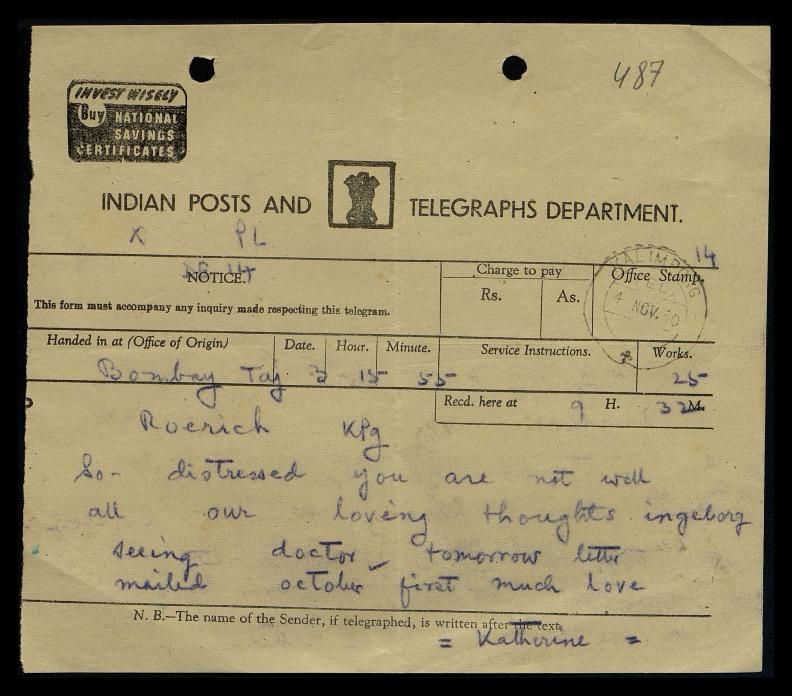 487
INVEST WISELY
Buy NATIONAL
SAVINGS
CERTIFICATES
INDIAN POSTS AND TELEGRAPHS DEPARTMENT.
X PL
14
NOTICE.
This form must accompany any inquiry made respecting this telegram.
Charge to pay
Rs. As.
Office Stamp.
KALIMPONG
4 NOV. 50
Handed in at (Office of Origin) Date. Hour. Minute. Service Instructions. Works.
Bombay Taj 3 15 55 25
Recd. here at 9 H. 32 M.
Roerich KPg
So- distressed you are not well
all our loving thoughts ingeborg
seeing doctor tomorrow letter
mailed october first much love
N. B.—The name of the Sender, if telegraphed, is written after the text.
= Katherine =